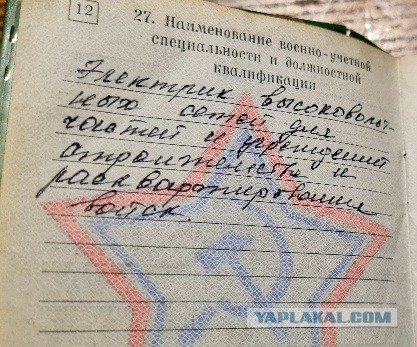 12
27. Наименование военно-учетной
специальности и должностной
квалификации
Электрик высоковольт-
ных сетей для
частей и учреждений
строительства и
расквартирования
войск.
YAPLAKAL.COM